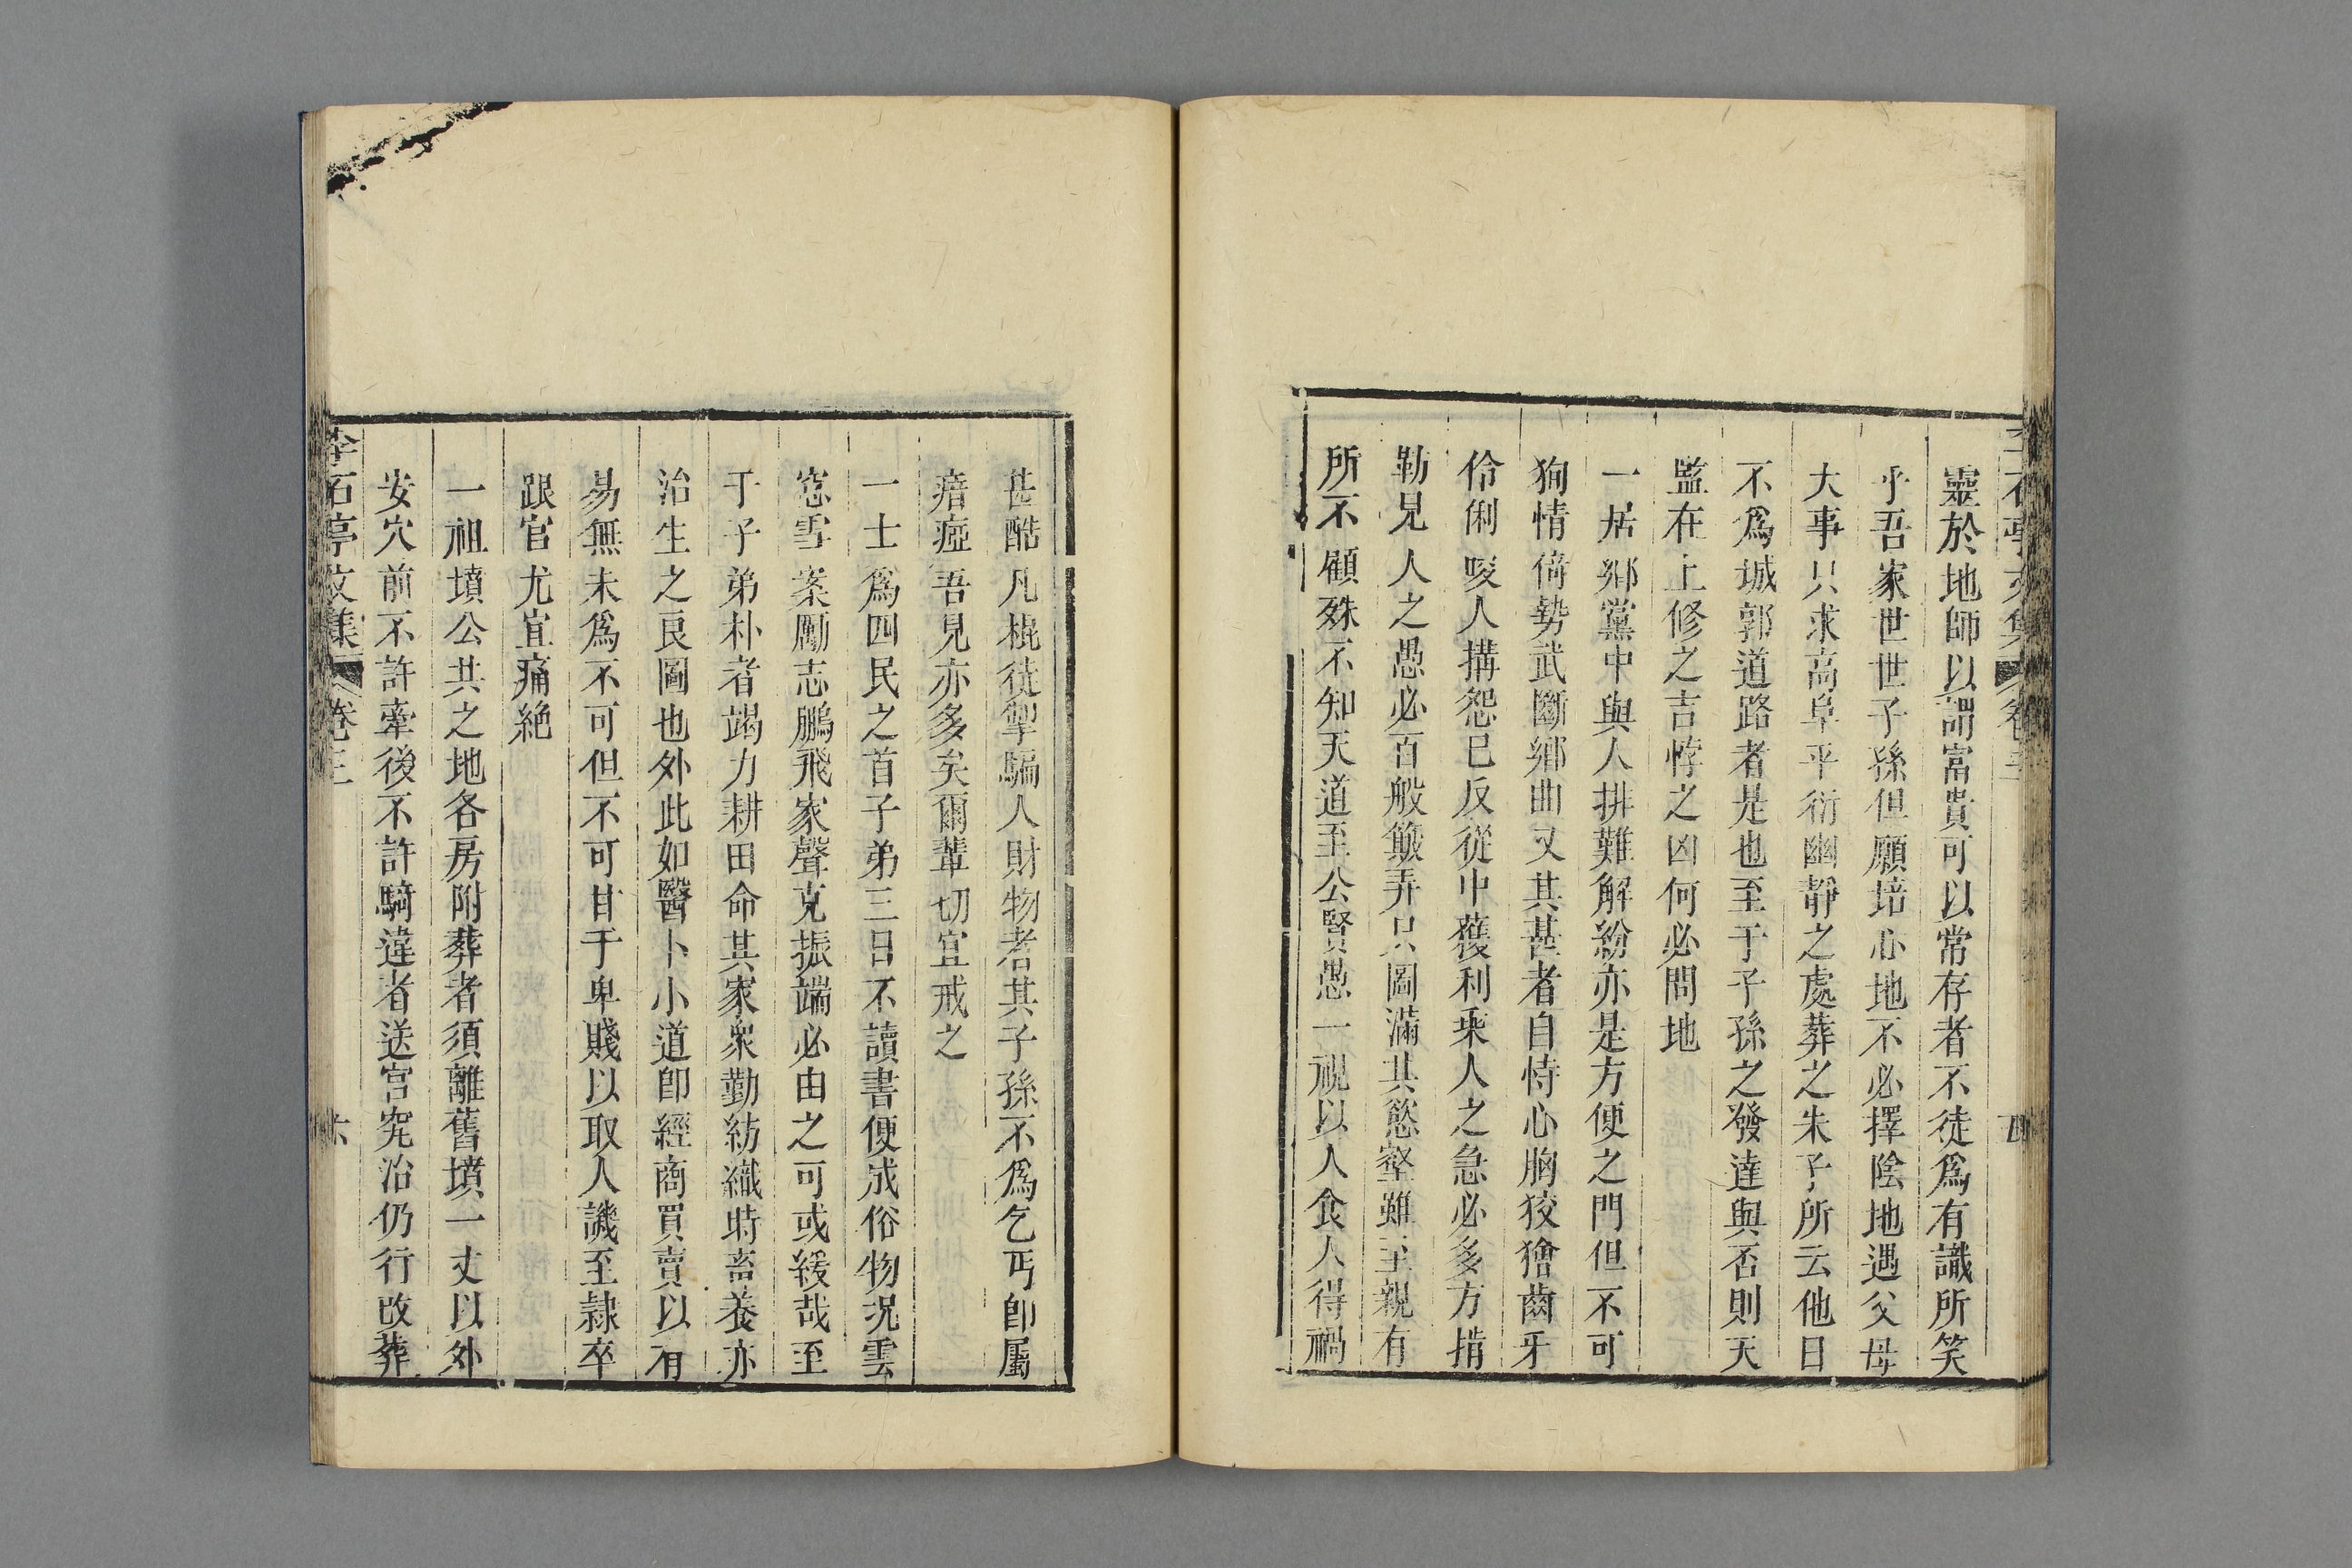 靈於地師以謂富貴可以常存者不徒爲有識所笑
乎吾家世世子孫但願培心地不必擇陰地遇父母
大事只求高阜平衍幽靜之處葬之朱子所云他日
不爲城郭道路者是也至于子孫之發達與否則天
監在上修之吉悖之凶何必問地
一居鄉黨中與人排難解紛亦是方便之門但不可
狥情倚勢武斷鄉曲又其甚者自恃心胸狡獪齒牙
伶俐唆人搆怨已反從中獲利乘人之急必多方掯
勒見人之愚必百般簸弄只圖滿其慾壑雖至親有
所不顧殊不知天道至公賢愚一視以人食人得禍
甚酷凡棍徒掣騙人財物者其子孫不爲乞丐卽屬
瘖瘂吾見亦多矣爾輩切宜戒之
一士爲四民之首子弟三日不讀書便成俗物況雲
窓雪案勵志鵬飛家聲克振端必由之可或緩哉至
于子弟朴者竭力耕田命其家衆勤紡織時畜養亦
治生之良圖也外此如醫卜小道卽經商買賣以有
易無未爲不可但不可甘于卑賤以取人譏至隷卒
跟官尤宜痛絶
一祖墳公共之地各房附葬者須離舊墳一丈以外
安穴前不許牽後不許騎違者送官究治仍行改葬
李石亭文集 卷三 六